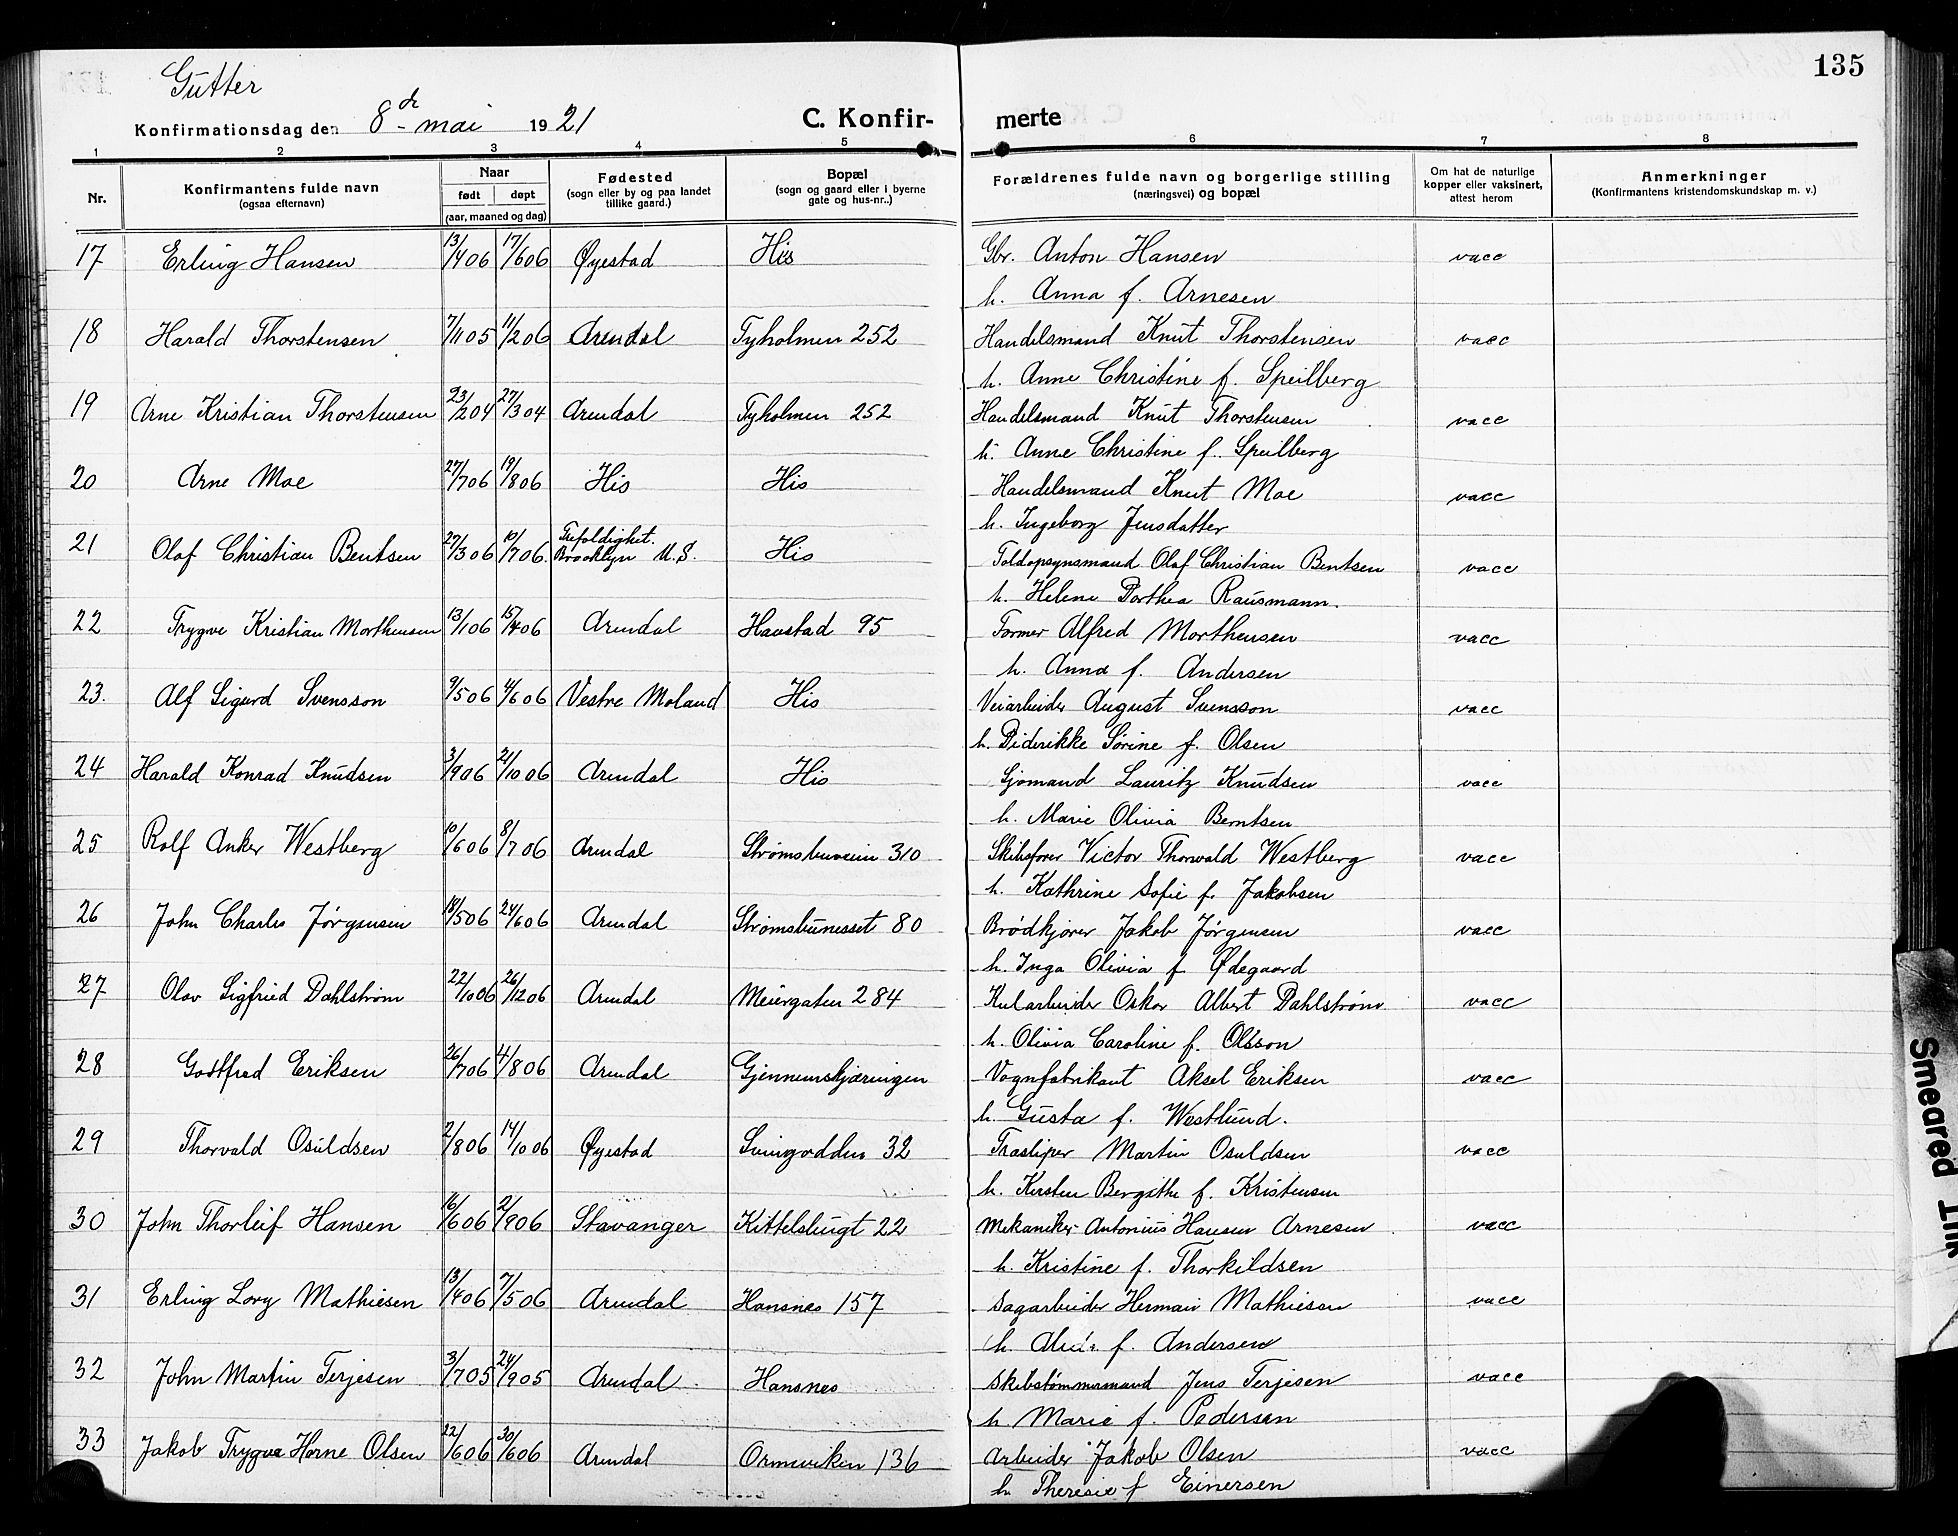 135
Gutter
Konfirmationsdag den 8de mai 1921
C. Konfirmerte
1 2 3 4 5 6 7 8
Nr.
Konfirmantens fulde navn
(ogsaa efternavn)
Naar
født døpt
(aar, maaned og dag)
Fødested
(sogn eller by og paa landet
tillike gaard.)
Bopæl
(sogn og gaard eller i byerne
gate og hus-nr..)
Forældrenes fulde navn og borgerlige stilling
(næringsvei) og bopæl
Om hat de naturlige
kopper eller vaksinert,
attest herom
Anmerkninger
(Konfirmantens kristendomskundskap m. v.)
17 Erling Hansen 13/4 06 17/6 06 Øyestad His Gbr. Anton Hansen vacc
h. Anna f. Arnesen
18 Harald Thorstensen 7/11 05 11/2 06 Arendal Tyholmen 252 Handelsmand Knut Thorstensen vacc
h. Anne Christine f. Speilberg
19 Arne Kristian Thorstensen 23/2 04 27/3 04 Arendal Tyholmen 252 Handelsmand Knut Thorstensen vacc
h. Anne Christine f. Speilberg
20 Arne Moe 27/7 06 19/8 06 His His Handelsmand Knut Moe vacc
h. Ingeborg Jensdatter
Trefoldighet.
21 Olaf Christian Bentsen 27/3 06 10/7 06. Brooklyn U.S. His Toldopsynsmand Olaf Christian Bentsen vacc
h. Helene Dorthea Rausmann.
22 Trygve Kristian Morthensen 13/1 06 15/4 06 Arendal Havstad 95 Former Alfred Morthensen vacc
h. Anna f. Andersen
23. Alf Sigurd Svensson 9/5 06 4/6 06 Vestre Moland His Veiarbeider August Svensson vacc
h. Diderikke Sørine f. Olsen
24 Harald Konrad Knudsen 3/9 06 21/10 06 Arendal His Sjømand Lauritz Knudsen vacc
h. Marie Olivia Berntsen
25 Rolf Anker Westberg 10/6 06 8/7 06 Arendal Strømsbuveien 310 Skibsfører Victor Thorwald Westberg vacc
h. Kathrine Sofie f. Jakobsen
26 John Charles Jørgensen 18/5 06 24/6 06 Arendal Strømsbunesset 80 Brødkjører Jakob Jørgensen vacc
h. Inga Olivia f. Ødegaard
27 Olav Sigfried Dahlstrøm 22/10 06 26/12 06 Arendal Meiergaten 284 Kularbeider Oskar Albert Dahlstrøm vacc
h. Olivia Caroline f. Olsson
28 Godtfred Eriksen 26/7 06 4/8 06 Arendal Gjennemskjæringen Vognfabrikant Aksel Eriksen vacc
h. Gusta f. Westlund.
29 Thorvald Osuldsen 2/8 06 14/10 06 Øyestad Svingodden 32 Trasliper Martin Osuldsen vacc
h. Kirsten Bergithe f. Kristensen
30 John Thorleif Hansen 16/6 06 2/9 06 Stavanger Kittelsbugt 22 Mekaniker Antonius Hansen Arnesen vacc
h. Kristine f. Thorkildsen
31 Erling Lovy Mathiesen 13/4 06 7/5 06 Arendal Hansnes 157 Sagarbeider Herman Mathiesen vacc
h. f. Andersen
32 John Martin Terjesen 3/7 05 24/9 05 Arendal Hansnes Skibstømmermand Jens Terjesen vacc
h. Marie f. Pedersen
33 Jakob Trygve Horne Olsen 22/6 06 30/6 06 Arendal Ormeviken 136 Arbeider Jakob Olsen vacc
h. Theresie f. Einersen
Smeared Ink